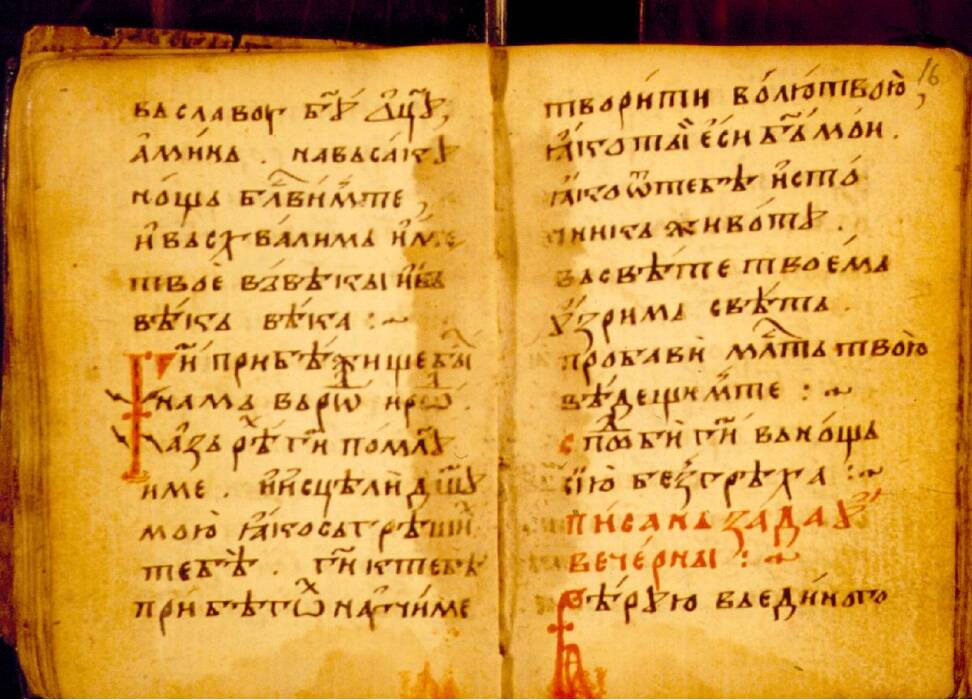 ва славоу бг҃ꙋ ѻ҆ц҃ꙋ,
а҆ми́нь . на вьса́кꙋ
но́щь бл҃ви́мь те ,
и҆ васхва́лимь и҆ме
твоѐ ва вѣ́кы и҆ ва
вѣ́кь вѣ́ка :~
Ги҃ прибѣ́жище бы́
нам҆ь ва рѡⷣ и҆ рѡⷣ .
а҆зь рѣ́хь ги҃ поми́лꙋ
и ме . и҆ и҆сцѣлѝ дш҃ꙋ
мою̀ ꙗ҆ко сагрѣши́хь
тебѣ̀ . ги҃ к тебѣ̀
прибѣгѡⷯ наꙋчи́ ме
16
твори́ти во́лю твою̀,
ꙗ҆́ко ты̀ є҆сѝ бг҃ь мо́и .
ꙗ҆́ко ѿ тебѣ̀ и҆сто́
чника живо́тꙋ .
ва свѣ́те твое́мь
ꙋ҆́зрима свѣ́ть .
пробавѝ мл҃ть твою̀
вѣ́дещимь те :~
спⷣобѝ ги҃ ва но́щь
сїю̀ без грѣ́ха :~
пи́сань за дах
вече́рны :~
Вѣ́рꙋю ва еди́ного